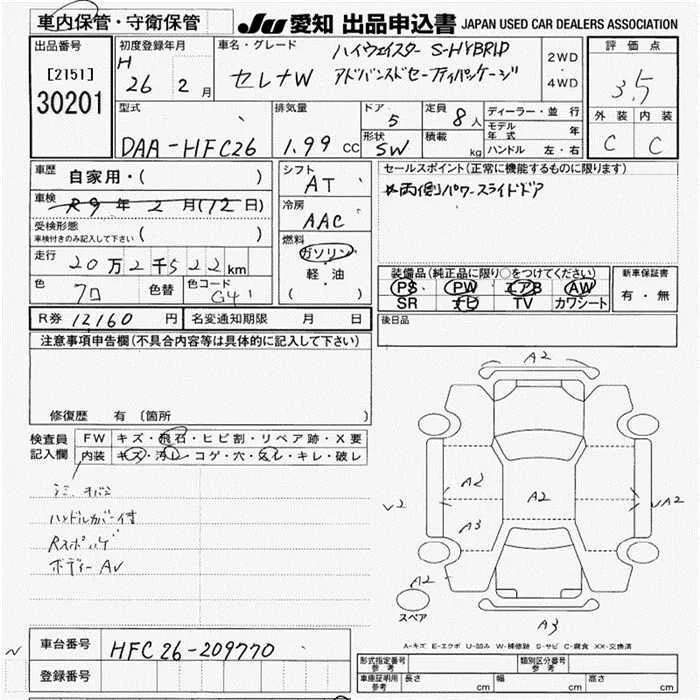 車内保管・守衛保管
JU 愛知 出品申込書 JAPAN USED CAR DEALERS ASSOCIATION
出品番号
[2151]
30201
初度登録年月
H
26 2 月
車名・グレード
ハイウェイスター S-HYBRID
セレナW アドバンスドセーフティパッケージ
2WD
・
4WD
評価点
3.5
外装 内装
C C
型式
DAA-HFC26
排気量
1.99 cc
ドア
5
定員
8 人
形状
SW
積載
kg
ディーラー・並行
モデル年式 年
ハンドル 左・右
車歴
自家用・( )
車検
R9 年 2 月(12日)
受検形態
車検付きのみ記入して下さい ( )
走行
20万2千522km
色
クロ
色替
色コード
G41
シフト
AT
冷房
AAC
燃料
ガソリン
・
軽・油
( )
セールスポイント(正常に機能するものに限ります)
*両側パワースライドドア
装備品(純正品に限り○をつけてください)
PS PW エアB AW
SR ナビ TV カワシート
新車保証書
有・無
後日品
R券 12160 円
名変通知期限 月 日
注意事項申告欄(不具合内容等は具体的に記入して下さい)
修復歴 有 〔箇所 〕
検査員
記入欄
FW キズ・飛石・ヒビ割・リペア跡・X要
内装 キズ・汚レ・コゲ・穴・スレ・キレ・破レ
シミ
ハンドルカバー付
ボディー AV
A2
A2
A2
A3
V2
A2
スペア
A3
A-キズ E-エクボ U-凹み W-補修跡 S-サビ C-腐食 XX-交換済
N
車台番号
HFC26-209770
登録番号
形式指定番号
参考
類別区分番号
参考
車庫証明用
参考
長さ cm 幅 cm 高さ cm